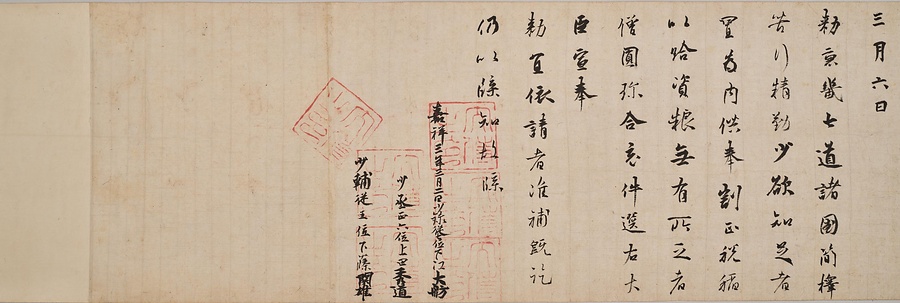 三月六日
勅京畿七道諸國簡擇
苦行精勤少欲知足者
置為内供奉割正税稲
以給資粮無有所乏者
僧圓珍合充件選右大
臣宣奉
勅宜依請者准補既訖
仍以牒知故牒
嘉祥三年三月二日少録從位下江大舫
少丞正六位上秀道
少輔從五位下藤關雄